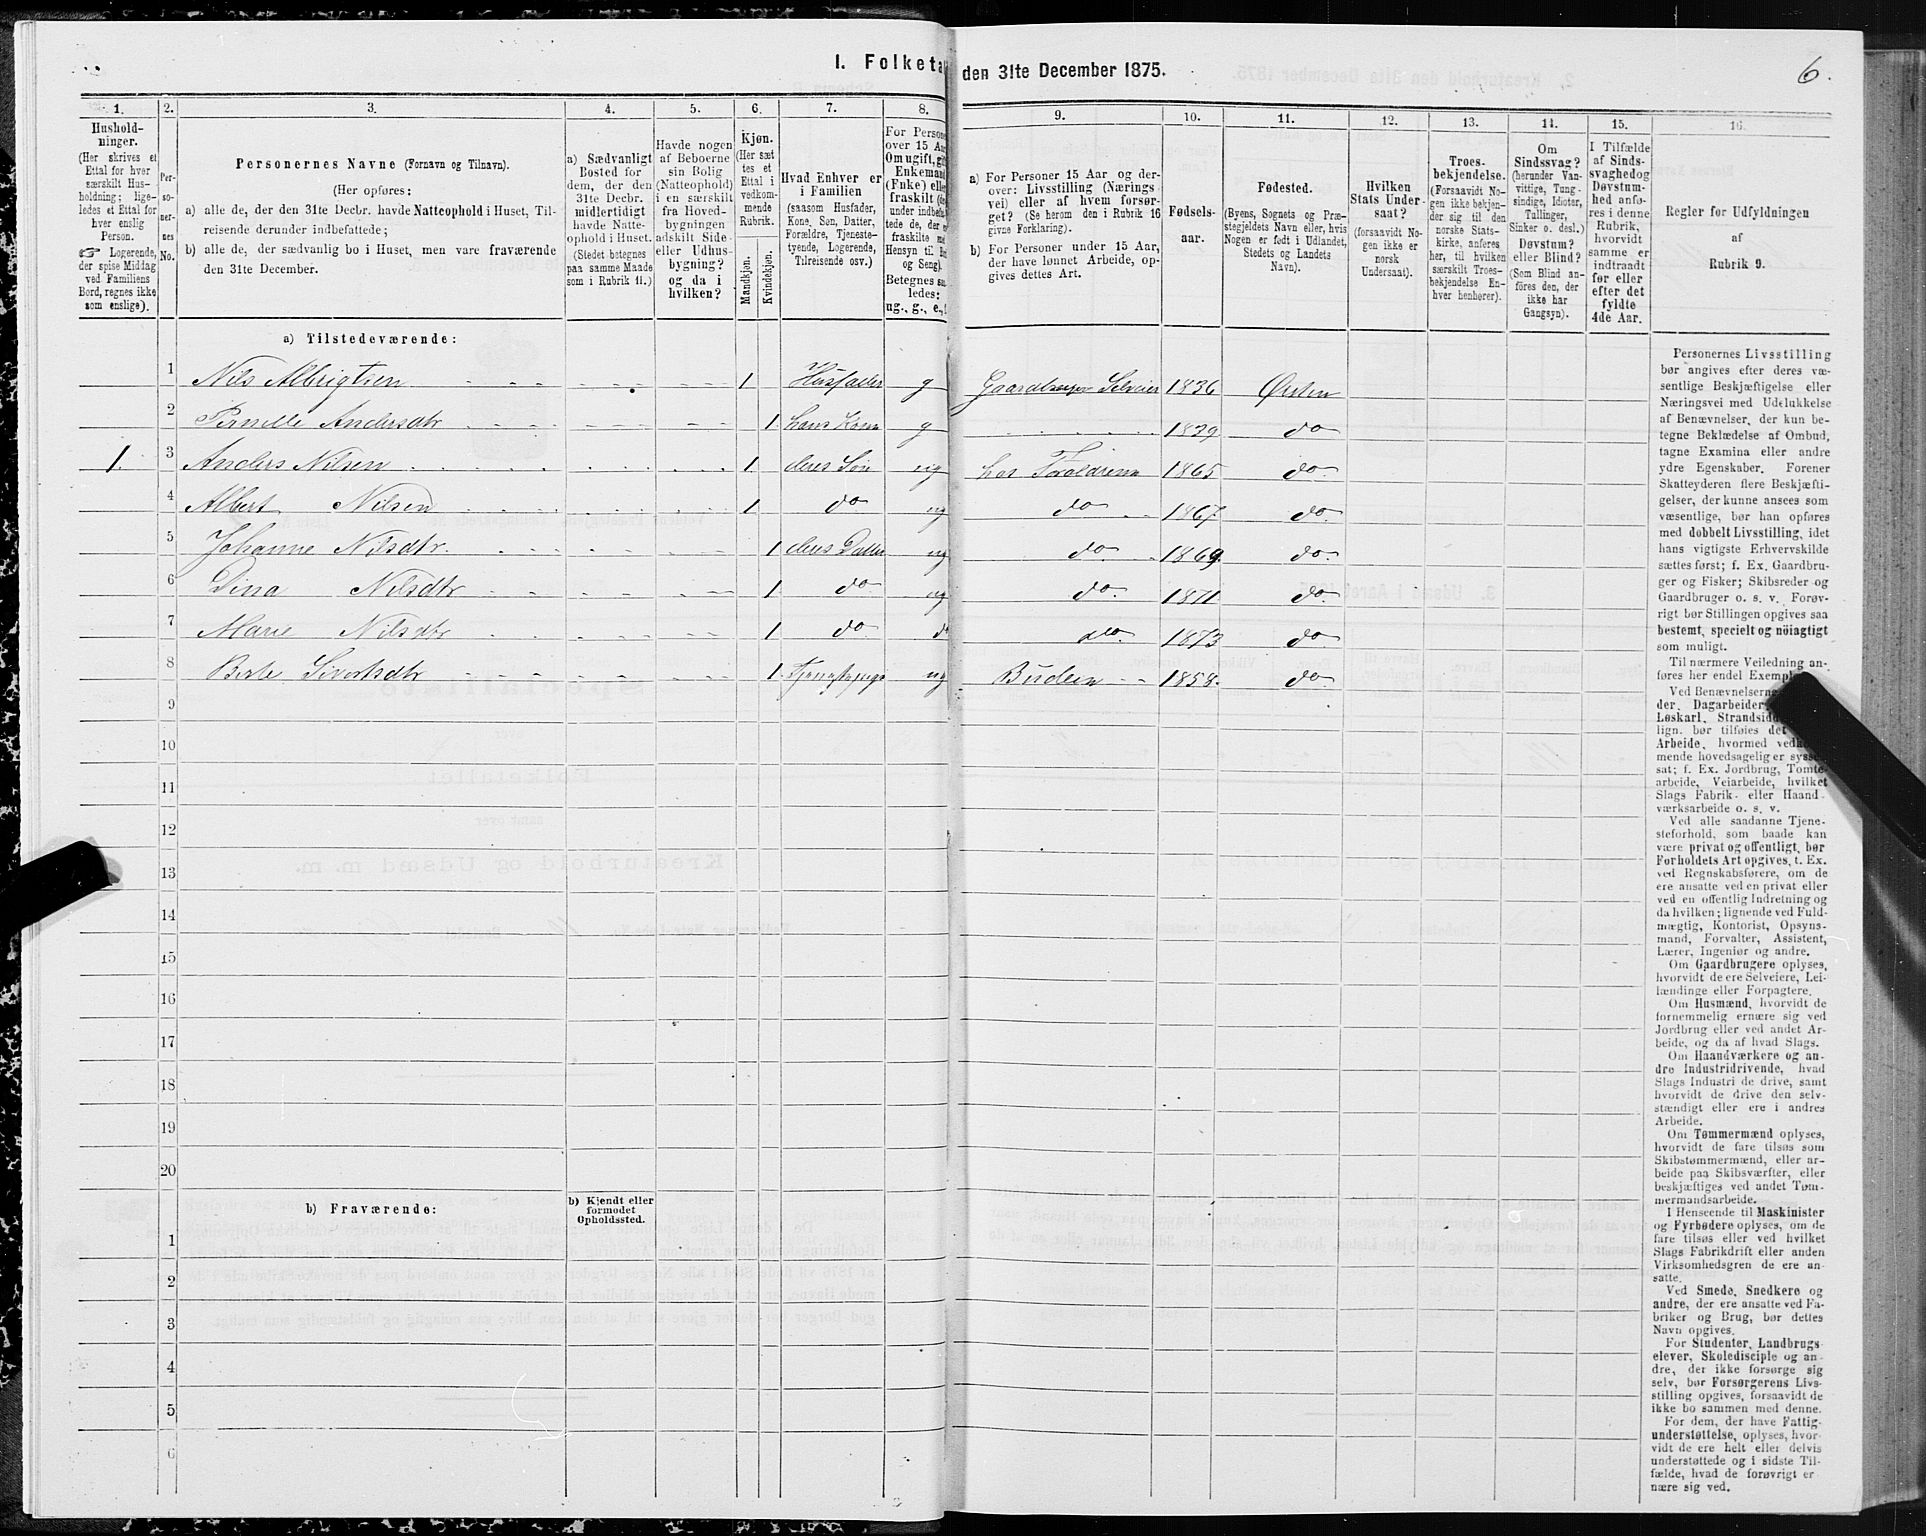 I. Folketa den 31te December 1875.
6.
1. 2. 3. 4. 5. 6. 7. 8. 9. 10. 11. 12. 13. 14. 15. 16.
Hushold-
ninger.
(Her skrives et
Ettal for hver
særskilt Hus-
holdning; lige-
ledes et Ettal for
hver enslig
Person.
☞ Logerende,
der spise Middag
ved Familiens
Bord, regnes ikke
som enslige).
Per-
so-
ner-
nes
No.
Personernes Navne (Fornavn og Tilnavn).
(Her opføres:
a) alle de, der den 31te Decbr. havde Natteophold i Huset, Til-
reisende derunder indbefattede;
b) alle de, der sædvanlig bo i Huset, men vare fraværende
den 31te December.
a) Sædvanligt
Bosted for
dem, der den
31te Decbr.
midlertidigt
havde Natte-
ophold i Huset.
(Stedet betegnes
paa samme Maade
som i Rubrik 11.)
Havde nogen
af Beboerne
sin Bolig
(Natteophold)
i en særskilt
fra Hoved-
bygningen
adskilt Side-
eller Udhus-
bygning?
og da i
hvilken?
Kjøn.
(Her sæt
tes et
Ettal i
vedkom-
mende
Rubrik.
Mandkjøn.
Kvindekjøn.
Hvad Enhver er
i Familien
(saasom Husfader,
Kone, Søn, Datter,
Forældre, Tjeneste-
tyende, Logerende,
Tilreisende osv.)
For Persone
over 15 Aar
Om ugift, gift
Enkemand
(Enke) elle
fraskilt (de
under indbefa
tede de, der e
fraskilte m
Hensyn til Bo
og Seng).
Betegnes sa
ledes:
ug., g., e.,
a) For Personer 15 Aar og der-
over: Livsstilling (Nærings
vei) eller af hvem forsør-
get? (Se herom den i Rubrik 16
givne Forklaring).
b) For Personer under 15 Aar,
der have lønnet Arbeide, op-
gives dettes Art.
Fødsels-
aar.
Fødested.
(Byens, Sognets og Præ-
stegjeldets Navn eller, hvis
Nogen er født i Udlandet,
Stedets og Landets
Navn).
Hvilken
Stats Under-
saat?
(forsaavidt No-
gen ikke er
norsk
Undersaat).
Troes-
bekjendelse.
(Forsaavidt No-
gen ikke bekjen-
der sig til den
norske Stats-
kirke, anføres
her, til hvilken
særskilt Troes-
bekjendelse En-
hver henhører).
Om
Sindssvag?
(herunder Van-
vittige, Tung-
sindige, Idioter,
Tullinger,
Sinker o. desl.)
Døvstum?
eller Blind?
(Som Blind an-
føres den, der
ikke har
Gangsyn).
I Tilfælde
af Sinds-
svaghed og
Døvstum-
hed anfø-
res i denne
Rubrik,
hvorvidt
samme er
indtraadt
før eller
efter det
fyldte
4de Aar.
Regler for Udfyldningen
af
Rubrik 9.
a) Tilstedeværende:
1 Nils Albrigtsen 1 Husfader g Gaardbruger Selveier 1836 Ørsten
2 Pernille Andersdtr 1 hans Kone g 1829 do
1. 3 Anders Nilsen 1 deres Søn ug hos Forældrene 1865 do
4 Albert Nilsen 1 do ug do 1867 do.
5 Johanne Nilsdtr. 1 deres Datter ug do. 1869. do.
6 Dina Nilsdtr 1 do. ug do. 1871 do.
7 Marie Nilsdtr 1 do do. 1873 do
8 Berte Sivertsdtr 1 ug Budeie 1858. do.
9
10
11
12
13
14
15
16
17
18
19
20
b) Fraværende:
b) Kjendt eller
formodet
Opholdssted.
1
2
3
4
5
6
Personernes Livsstilling
bør angives efter deres væ-
sentlige Beskjæftigelse eller
Næringsvei med Udelukkelse
af Benævnelser, der kun be-
tegne Beklædelse af Ombud,
tagne Examina eller andre
ydre Egenskaber. Forener
Skatteyderen flere Beskjæfti-
gelser, der kunne ansees som
væsentlige, bør han opføres
med dobbelt Livsstilling, idet
hans vigtigste Erhvervskilde
sættes først; f. Ex. Gaardbru-
ger og Fisker; Skibsreder og
Gaardbruger o. s. v. Forøv-
rigt bør Stillingen opgives saa
bestemt, specielt og nöiagtigt
som muligt.
Til nærmere Veiledning an-
føres her endel Exemp
Ved Benævnelserne
der, Dagarbeider,
Løskarl, Strandsid
lign. bør tilføies det
Arbeide, hvormed vedkom-
mende hovedsagelig er syssel-
sat; f. Ex. Jordbrug, Tomte-
arbeide, Veiarbeide, hvilket
Slags Fabrik- eller Haand-
værksarbeide o. s. v.
Ved alle saadanne Tjene-
steforhold, som baade kan
være privat og offentligt, bør
Forholdets Art opgives, t. Ex.
ved Regnskabsførere, om de
ere ansatte ved en privat eller
ved en offentlig Indretning og
da hvilken; lignende ved Fuld-
mægtig, Kontorist, Opsyns-
mand, Forvalter, Assistent,
Lærer, Ingeniør og andre.
Om Gaardbrugere oplyses,
hvorvidt de ere Selveiere, Lei-
lændinge eller Forpagtere.
Om Husmænd, hvorvidt de
fornemmelig ernære sig ved
Jordbrug eller ved andet Ar-
beide, og da af hvad Slags.
Om Haandværkere og an-
dre Industridrivende, hvad
Slags Industri de drive, samt
hvorvidt de drive den selv-
stændigt eller ere i andres
Arbeide.
Om Tømmermænd oplyses,
hvorvidt de fare tilsøs som
Skibstømmermænd, eller ar-
beide paa Skibsværfter, eller
beskjæftiges ved andet Tøm-
mermandsarbeide.
I Henseende til Maskinister
og Fyrbødere oplyses, om de
fare tilsøs eller ved hvilket
Slags Fabrikdrift eller anden
Virksomhedsgren de ere an-
satte.
Ved Smede, Snedkere og
andre, der ere ansatte ved Fa-
briker og Brug, bør dettes
Navn opgives.
For Studenter, Landbrugs-
elever, Skoledisciple og an-
dre, der ikke forsørge sig
selv, bør Forsørgerens Livs-
stilling opgives, forsaavidt de
ikke bo sammen med denne.
For dem, der have Fattig-
understøttelse, oplyses, hvor-
vidt de ere helt eller delvis
understøttede og i sidste Til-
fælde, hvad de forøvrigt er
nære sig ved.